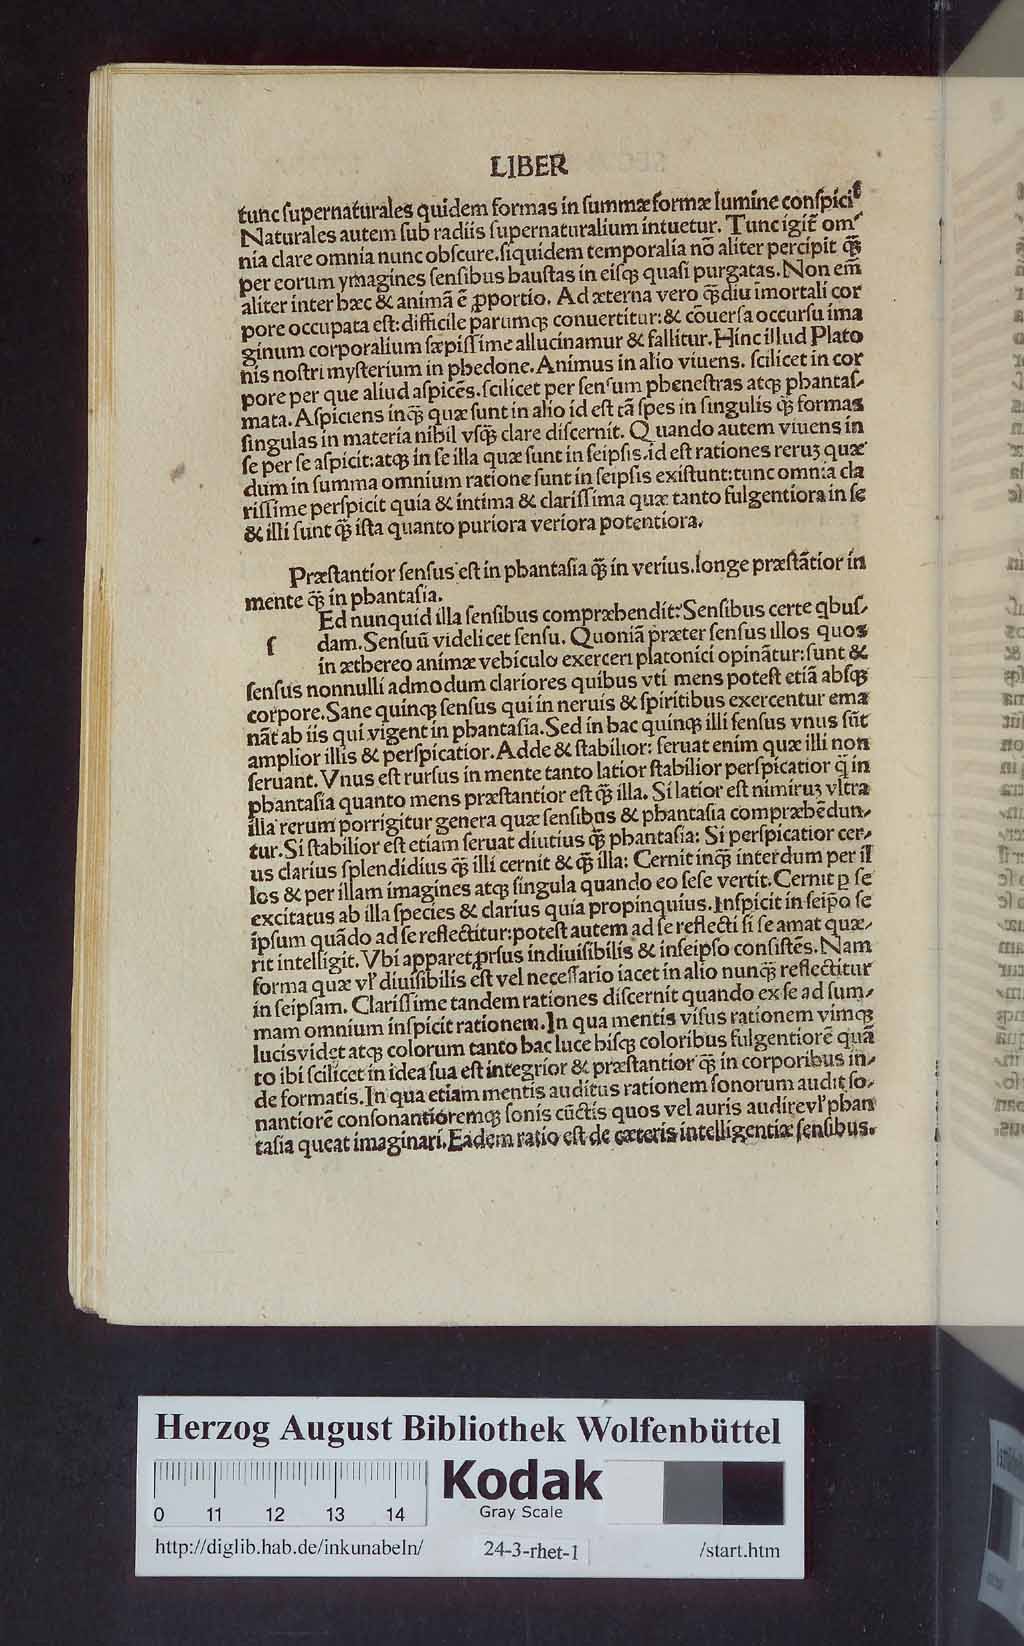 LIBER
tunc supernaturales quidem formas in summæ formæ lumine conspici
Naturales autem sub radiis supernaturalium intuetur. Tunc igit̃ om-
nia clare omnia nunc obscure. siquidem temporalia nõ aliter percipit q̃
per eorum ymagines sensibus haustas in eisq; quasi purgatas. Non em̃
aliter inter hæc & animã ẽ ꝓportio. Ad æterna vero q̃diu imortali cor
pore occupata est: difficile parumq; conuertitur: & cõuersa occursu ima
ginum corporalium sæpissime allucinamur & fallitur. Hinc illud Plato
nis nostri mysterium in phedone. Animus in alio viuens. scilicet in cor
pore per que aliud aspicẽs. scilicet per sensum phenestras atq; phantas-
mata. Aspiciens inq̃ quæ sunt in alio id est tã spes in singulis q̃ formas
singulas in materia nihil vsq̃ clare discernit. Quando autem viuens in
se per se aspicit: atq; in se illa quæ sunt in seipsis. id est rationes reruꝫ quæ
dum in summa omnium ratione sunt in seipsis existunt: tunc omnia cla
rissime perspicit quia & intima & clarissima quæ tanto fulgentiora in se
& illi sunt q̃ ista quanto puriora veriora potentiora.
Præstantior sensus est in phantasia q̃ in verius. longe præstãtior in
mente q̃ in phantasia.
Ed nunquid illa sensibus compræhendit? Sensibus certe qbus-
s dam. Sensuũ videlicet sensu. Quoniã præter sensus illos quos
in æthereo animæ vehiculo exerceri platonici opinãtur: sunt &
sensus nonnulli admodum clariores quibus vti mens potest etiã absq;
corpore. Sane quinq; sensus qui in neruis & spiritibus exercentur ema
nãt ab iis qui vigent in phantasia. Sed in hac quinq; illi sensus vnus sũt
amplior illis & perspicatior. Adde & stabilior: seruat enim quæ illi non
seruant. Vnus est rursus in mente tanto latior stabilior perspicatior q̃ in
phantasia quanto mens præstantior est q̃ illa. Si latior est nimiruꝫ vltra
illa rerum porrigitur genera quæ sensibus & phantasia compræhẽdun-
tur. Si stabilior est etiam seruat diutius q̃ phantasia: Si perspicatior cer-
us clarius splendidius q̃ illi cernit & q̃ illa: Cernit inq̃ interdum per il
los & per illam imagines atq; singula quando eo sese vertit. Cernit ꝑ se
excitatus ab illa species & clarius quia propinquius. Inspicit in seip̃o se
ipsum quãdo ad se reflectitur: potest autem ad se reflecti si se amat quæ-
rit intelligit. Vbi apparet ꝓrsus indiuisibilis & inseipso consistẽs. Nam
forma quæ vľ diuisibilis est vel necessario iacet in alio nunq̃ reflectitur
in seipsam. Clarissime tandem rationes discernit quando ex se ad sum-
mam omnium inspicit rationem. In qua mentis visus rationem vimq;
lucis videt atq; colorum tanto hac luce hisq; coloribus fulgentiorẽ quã
to ibi scilicet in idea sua est integrior & præstantior q̃ in corporibus in-
de formatis. In qua etiam mentis auditus rationem sonorum audit so-
nantiorẽ consonantioremq; sonis cũctis quos vel auris audire vľ phan
tasia queat imaginari. Eadem ratio est de cæteris intelligentiæ sensibus.
Herzog August Bibliothek Wolfenbüttel
0 11 12 13 14
Kodak
Gray Scale
http://diglib.hab.de/inkunabeln/ 24-3-rhet-1 /start.htm